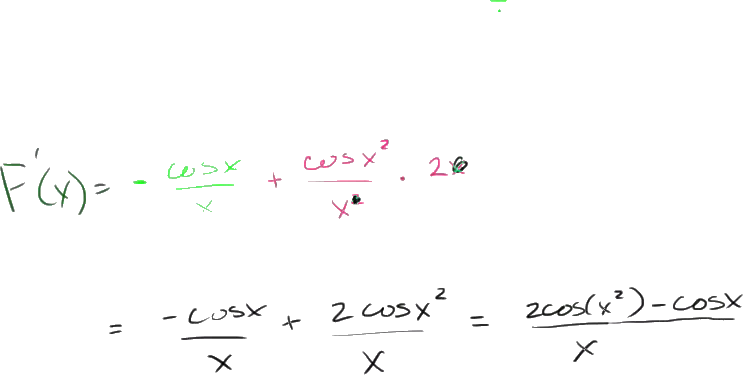 F'(x) = - cosx/x + cosx²/x² · 2x
= -cosx/x + 2cosx²/x = 2cos(x²)-cosx/x